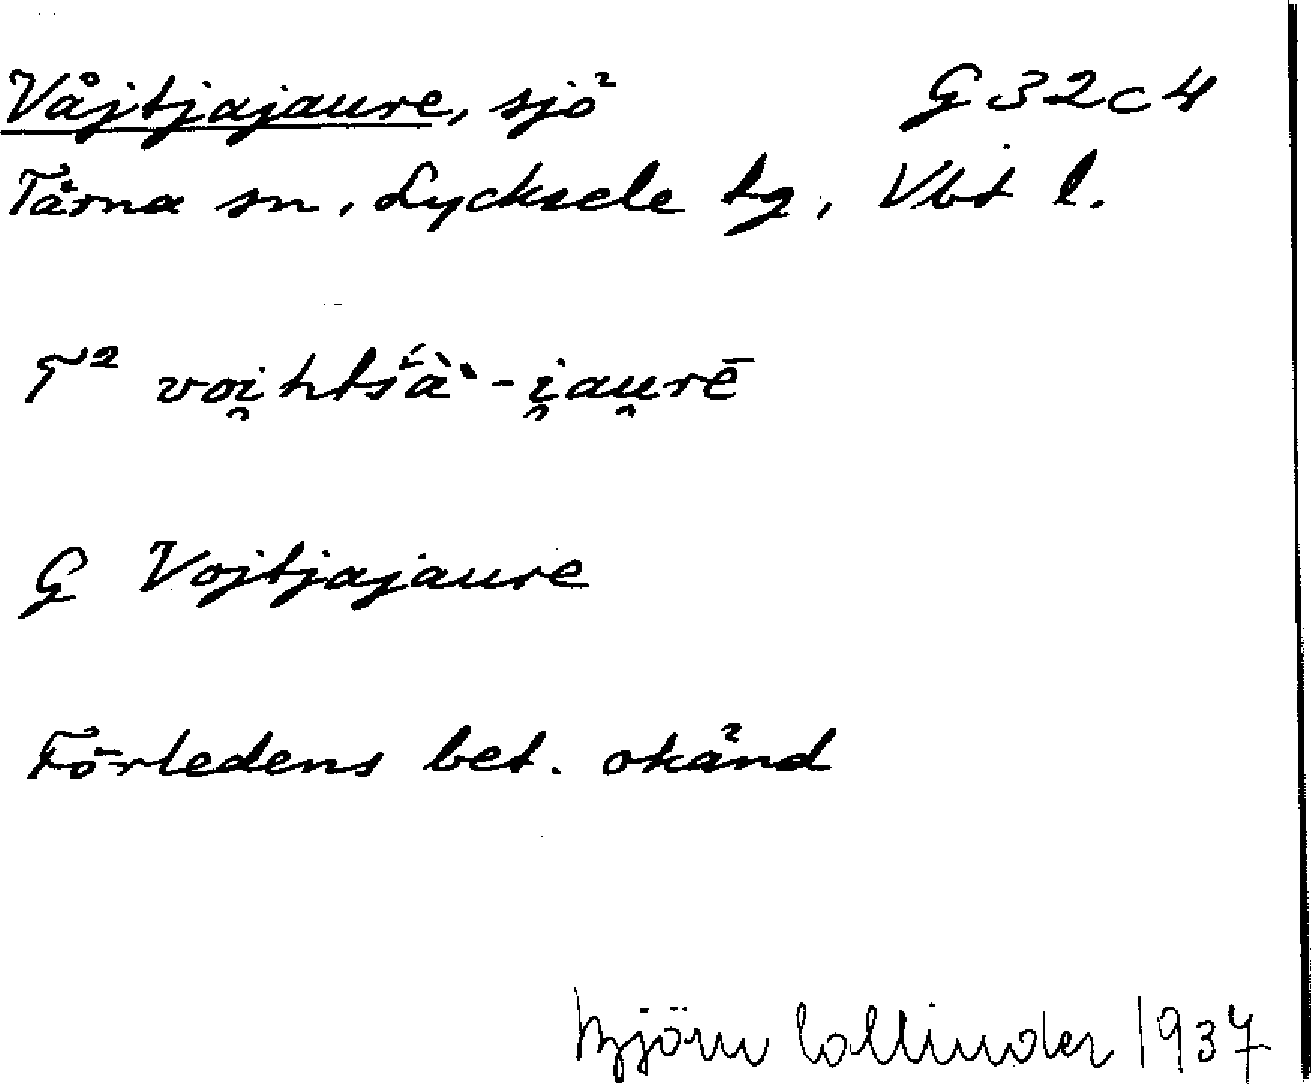 Våjtjajaure, sjö G 32 c 4
Tärna sn, Lycksele tg, Vbt l.
T² voi̯htśà-i̯au̯rē
G Vojtjajaure
Förledens bet. okänd
Björn Collinder 1937